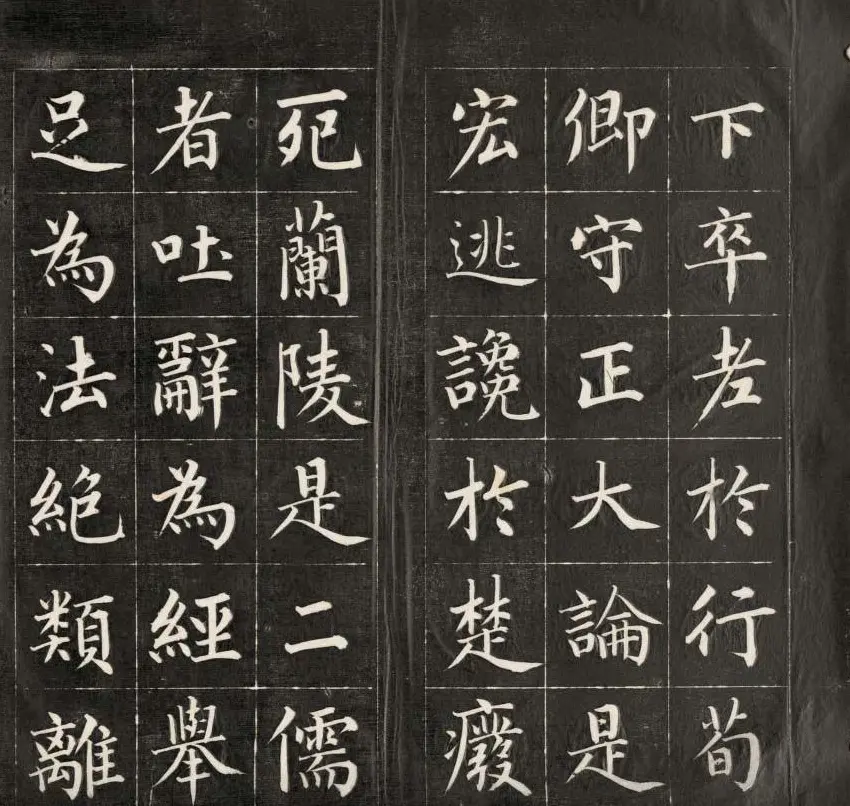 下卒老於行荀
卿守正大論是
宏逃讒於楚廢
死蘭陵是二儒
者吐辭為經舉
足為法絕類離